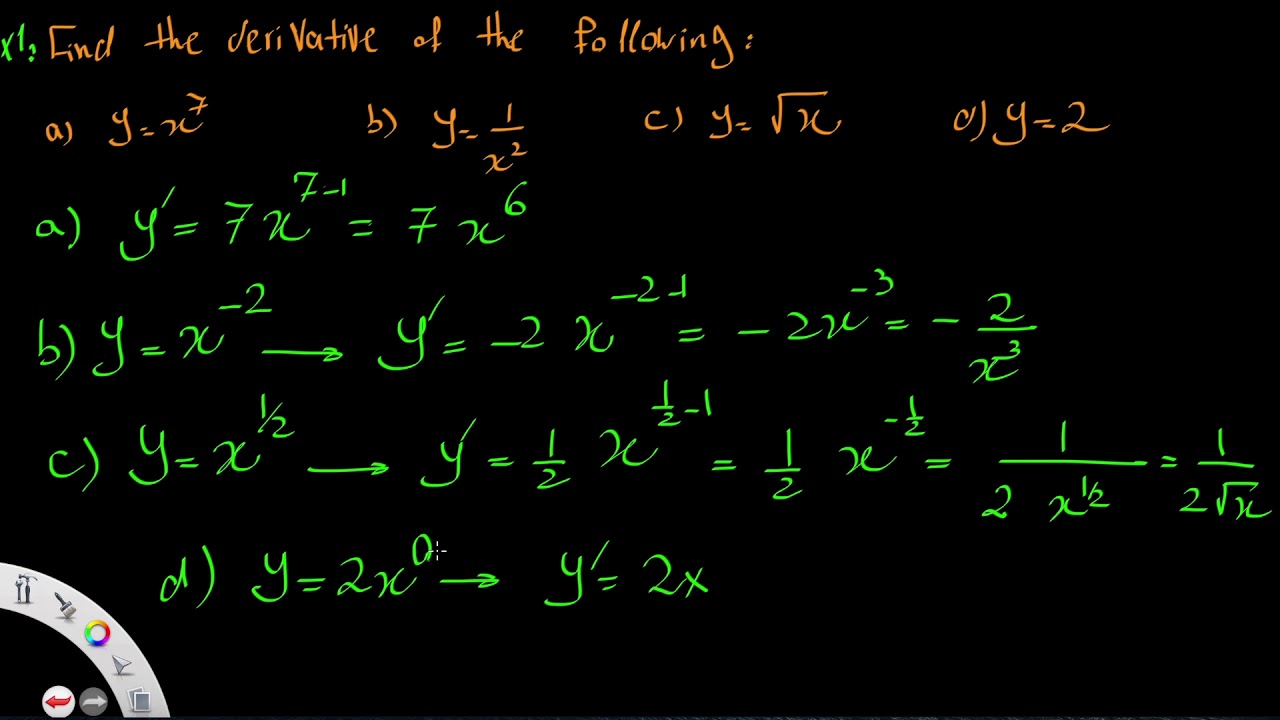 x1: Find the derivative of the following:
a) y = x^7 b) y = 1/x^2 c) y = √x d) y = 2
a) y' = 7x^(7-1) = 7x^6
b) y = x^(-2) → y' = -2x^(-2-1) = -2x^(-3) = -2/x^3
c) y = x^(1/2) → y' = 1/2 x^(1/2-1) = 1/2 x^(-1/2) = 1/(2 x^(1/2)) = 1/(2√x)
d) y = 2x^0 → y' = 2x